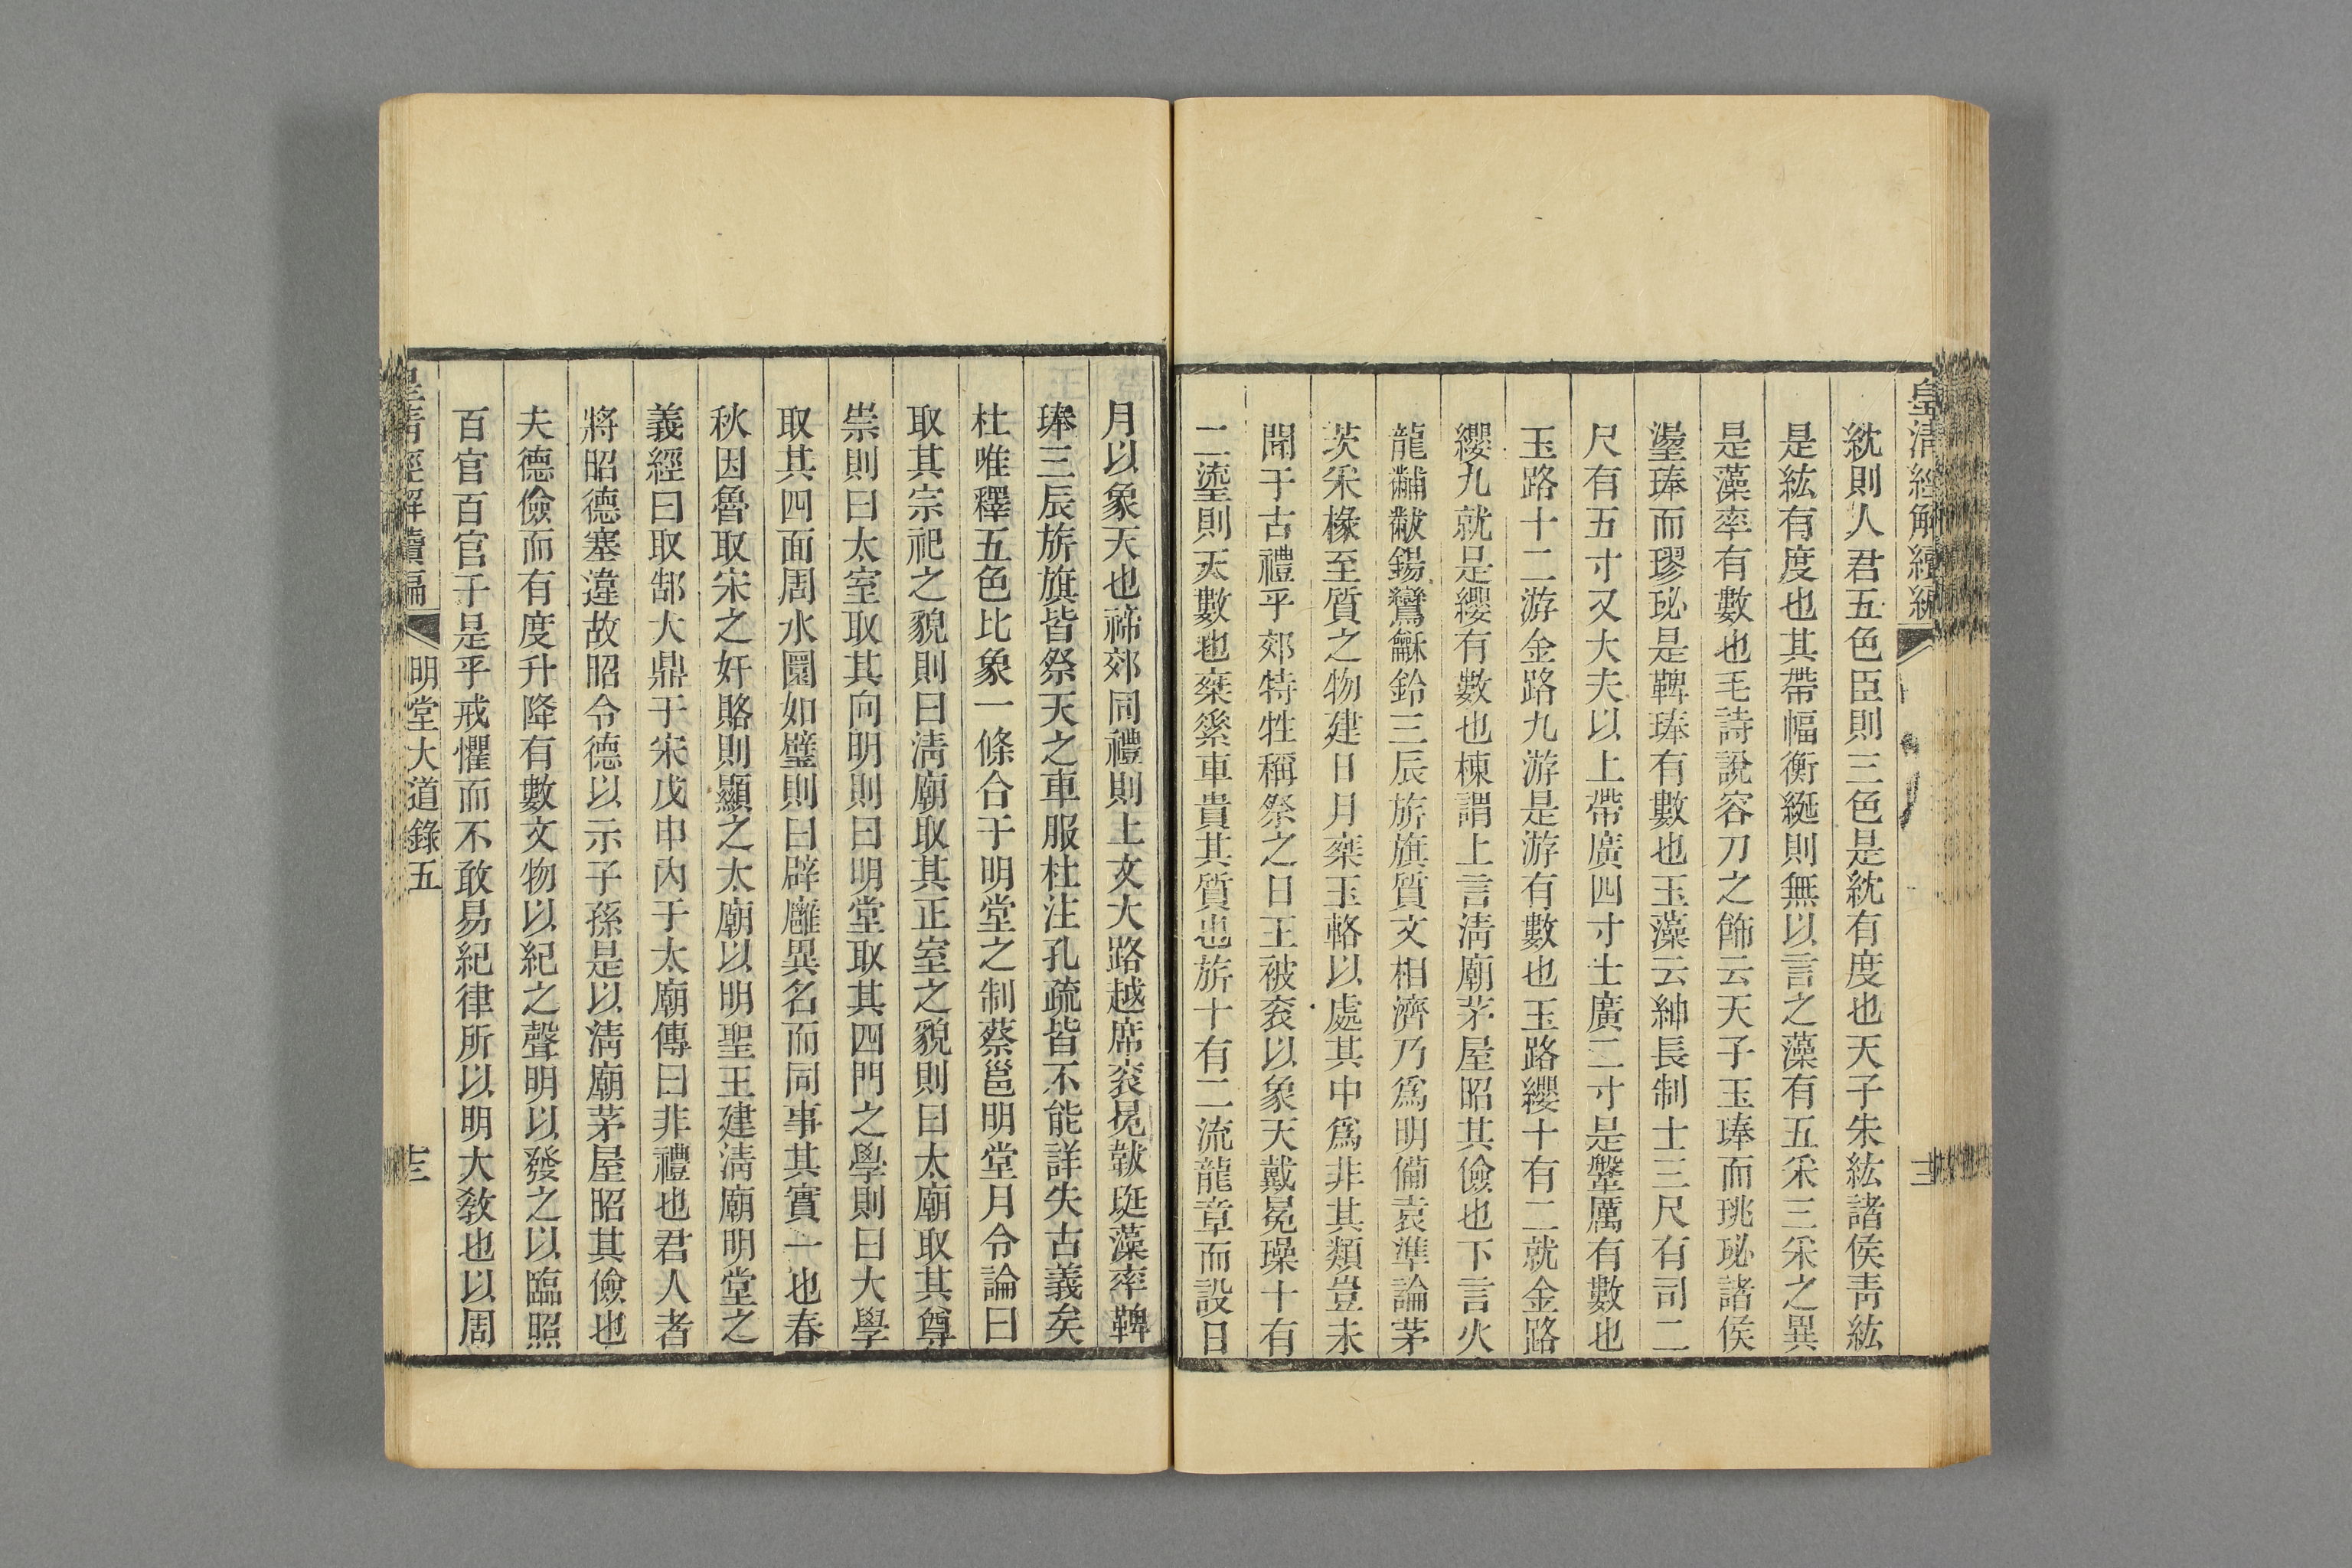 皇清經解續編
紞則人君五色臣則三色是紞有度也天子朱紘諸侯靑紘
是紘有度也其帶幅衡綖則無以言之藻有五采三采之異
是藻率有數也毛詩說容刀之飾云天子玉琫而珧珌諸侯
璗琫而璆珌是鞞琫有數也玉藻云紳長制士三尺有司二
尺有五寸又大夫以上帶廣四寸士廣二寸是鞶厲有數也
玉路十二游金路九游是游有數也玉路纓十有二就金路
纓九就是纓有數也棟謂上言淸廟茅屋昭其儉也下言火
龍黼黻鍚鸞龢鈴三辰旂旗質文相濟乃爲明備袁準論茅
茨采椽至質之物建日月桀玉輅以處其中爲非其類豈未
聞于古禮乎郊特牲稱祭之日王被衮以象天戴冕璪十有
二瑬則天數也桀素車貴其質也旂十有二流龍章而設日
月以象天也禘郊同禮則上文大路越席衮冕韍珽藻率鞞
琫三辰旂旗皆祭天之車服杜注孔疏皆不能詳失古義矣
杜唯釋五色比象一條合于明堂之制蔡邕明堂月令論曰
取其宗祀之貌則曰淸廟取其正室之貌則曰太廟取其尊
崇則曰太室取其向明則曰明堂取其四門之學則曰大學
取其四面周水圜如璧則曰辟廱異名而同事其實一也春
秋因魯取宋之奸賂則顯之太廟以明聖王建淸廟明堂之
義經曰取郜大鼎于宋戊申內于太廟傳曰非禮也君人者
將昭德塞違故昭令德以示子孫是以淸廟茅屋昭其儉也
夫德儉而有度升降有數文物以紀之聲明以發之以臨照
百官百官于是乎戒懼而不敢易紀律所以明大敎也以周
皇清經解續編 明堂大道錄五